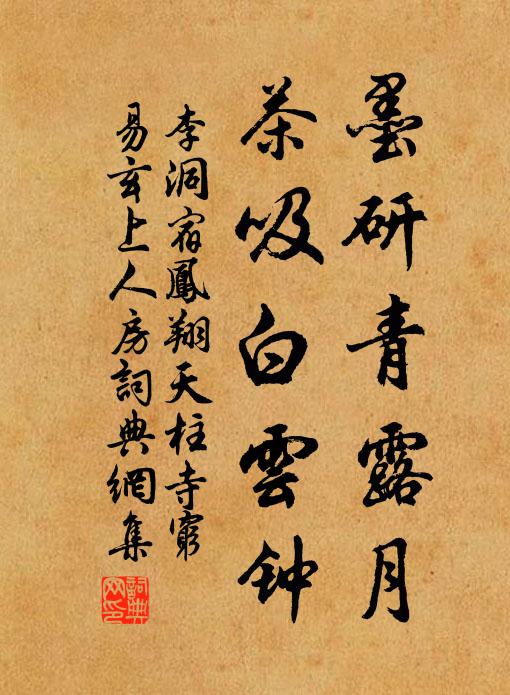 墨研青露月
茶吸白雲钟
李洞宿鳳翔天柱寺窮
易玄上人房詞典網集
詞典網印